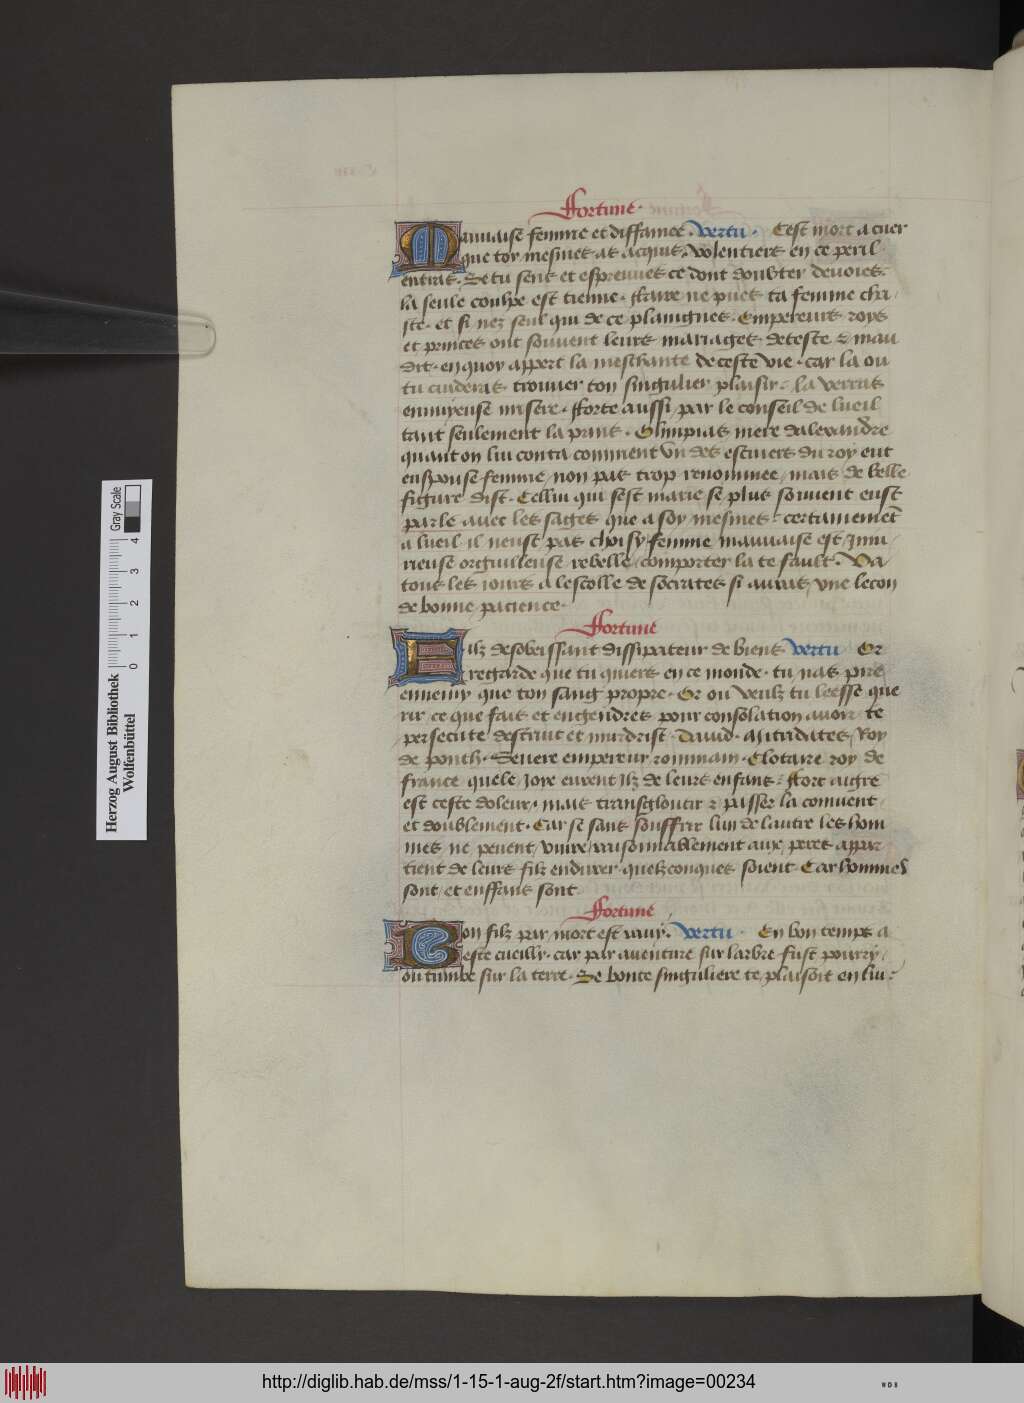 Fortune ·
Mauuaise femme et diffamee · vertu · Cest mort a cuer
que toy mesmes as acquis · volentiers en ce peril
entras · Se tu sens et espreuues ce dont doubter deuoies
la seule coulpe est tienne · ffaire ne puet ta femme cha
ste · et si nez seul qui de ce plaingnes · Empereurs roys
et princes ont souuent leurs mariages deteste & mau
dit · en quoy appert la meschante de ceste vie · car la ou
tu cuideras trouuer ton singulier plaisir · la verras
ennuyeuse misere · fforte aussi par le conseil de lueil
tant seulement la prins · Olimpias mere dalexandre
quant on lui conta comment vn des escuiers du roy eut
enspouse femme non pas trop renommee mais de belle
figure dist · Cellui qui sest marie se plus souuent eust
parle auec les sages que a soy mesmes certainemēt
a lueil il neust pas choisy femme mauuaise est Iniu
rieuse orguilleuse rebelle comporter la te fault · Va
tous les iours a lescolle de socrates si auras vne lecon
de bonne pacience ·
Fortune
Filz desobeissant dissipateur de biens vertu Or
regarde que tu quiers en ce monde · tu nas pire
ennemy que ton sang propre · Or ou veulz tu leesse que
rir ce que fais et engendres pour consolation auoir te
persecute destruit et murdrist · Dauid · Mitridates Roy
de ponth · Seuere empereur rommain · Clotaire roy de
france quele Ioye eurent Ilz de leurs enfans · ffort aigre
est ceste doleur mais transgloutir & passer la conuient
et doublement · Car se sans souffrir lun de lautre les hom
mes ne peuent viure raisonnablement aux peres appar
tient de leurs filz endurer quelzconques soient · Car hommes
sont et enffans sont
Fortune
Bon filz par mort est rauy · vertu · En bon temps a
este cueilly · car par auenture sur larbre fust pourry
ou tumbe sur la terre · Se bonte singuliere te plaisoit en lui
Herzog August Bibliothek
Wolfenbüttel
0 1 2 3 4
Gray Scale
http://diglib.hab.de/mss/1-15-1-aug-2f/start.htm?image=00234